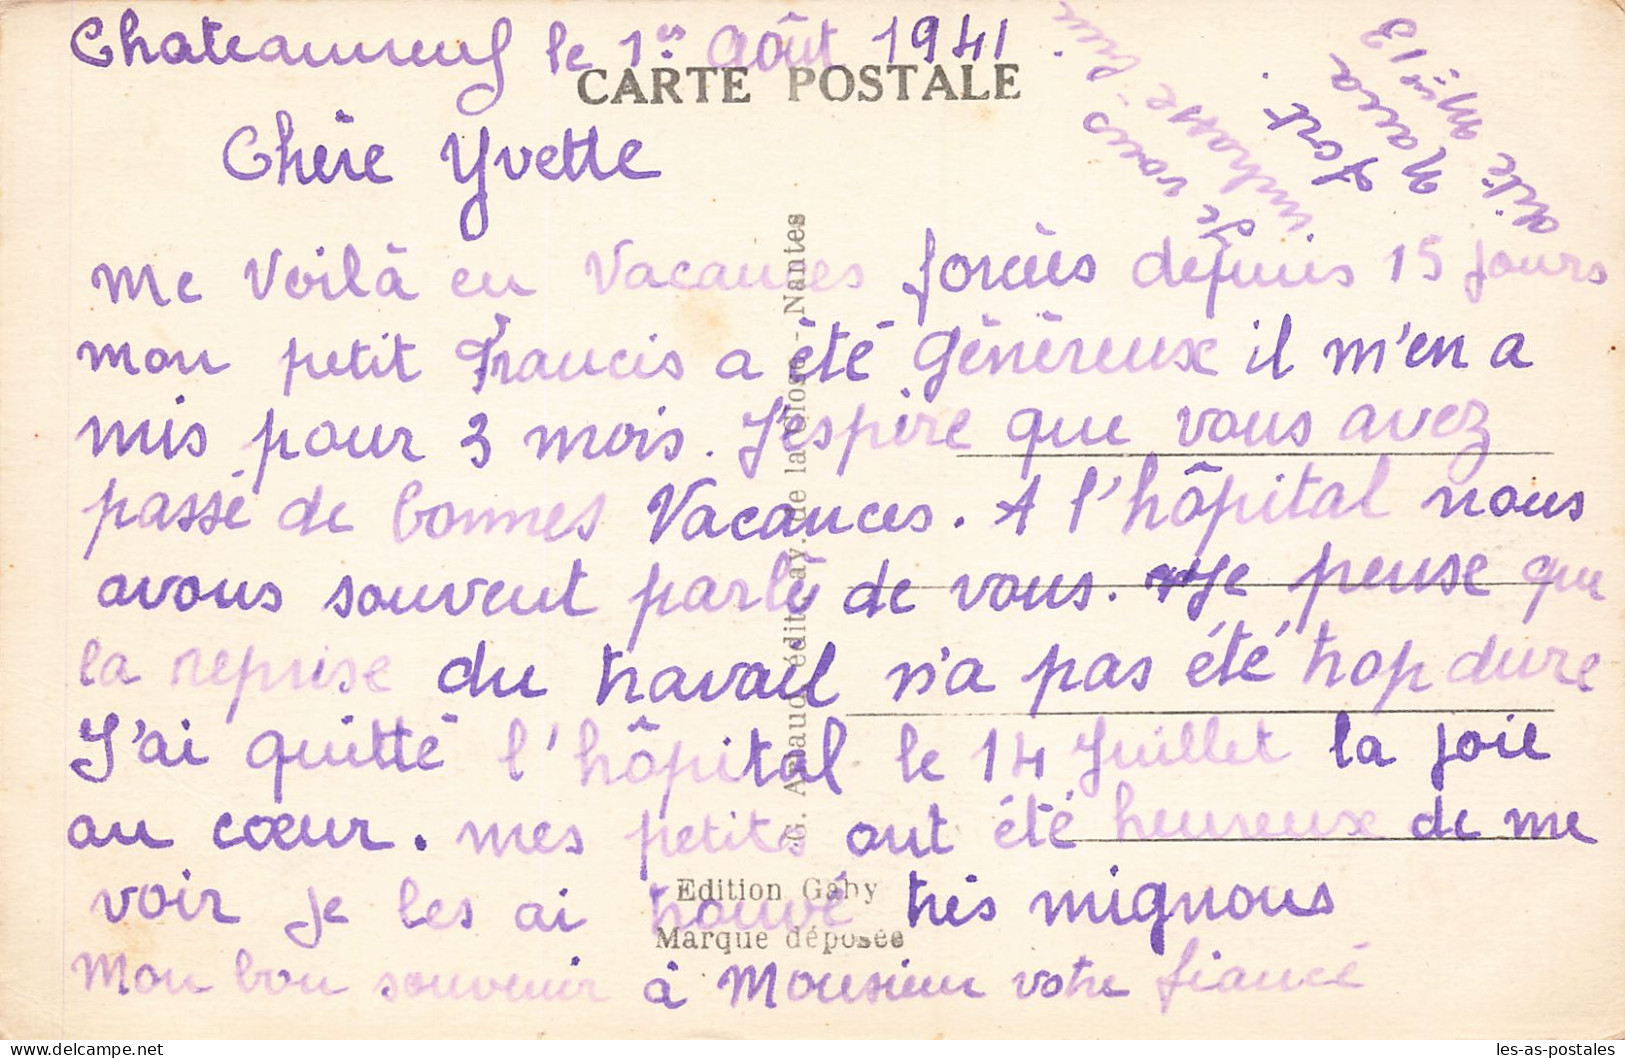 Chateauneuf le 1er Août 1941
CARTE POSTALE
Chère Yvette
Me Voilà en Vacances forcées depuis 15 jours
mon petit Francis a été généreux il m'en a
mis pour 3 mois. J'espère que vous avez
passé de bonnes Vacances. A l'hôpital nous
avons souvent parlé de vous. Je pense que
la reprise du travail n'a pas été trop dure
J'ai quitté l'hôpital le 14 Juillet la joie
au cœur. mes petits ont été heureux de me
voir je les ai trouvé très mignons
Mon bon souvenir à Monsieur votre fiancé
Je vous
embrasse bien
fort.
Maria
dite Mme 13
G. Artaud, édit. Gay. de la Close - Nantes
Edition Gaby
Marque déposée
les-as-postales.com
les-as-postales